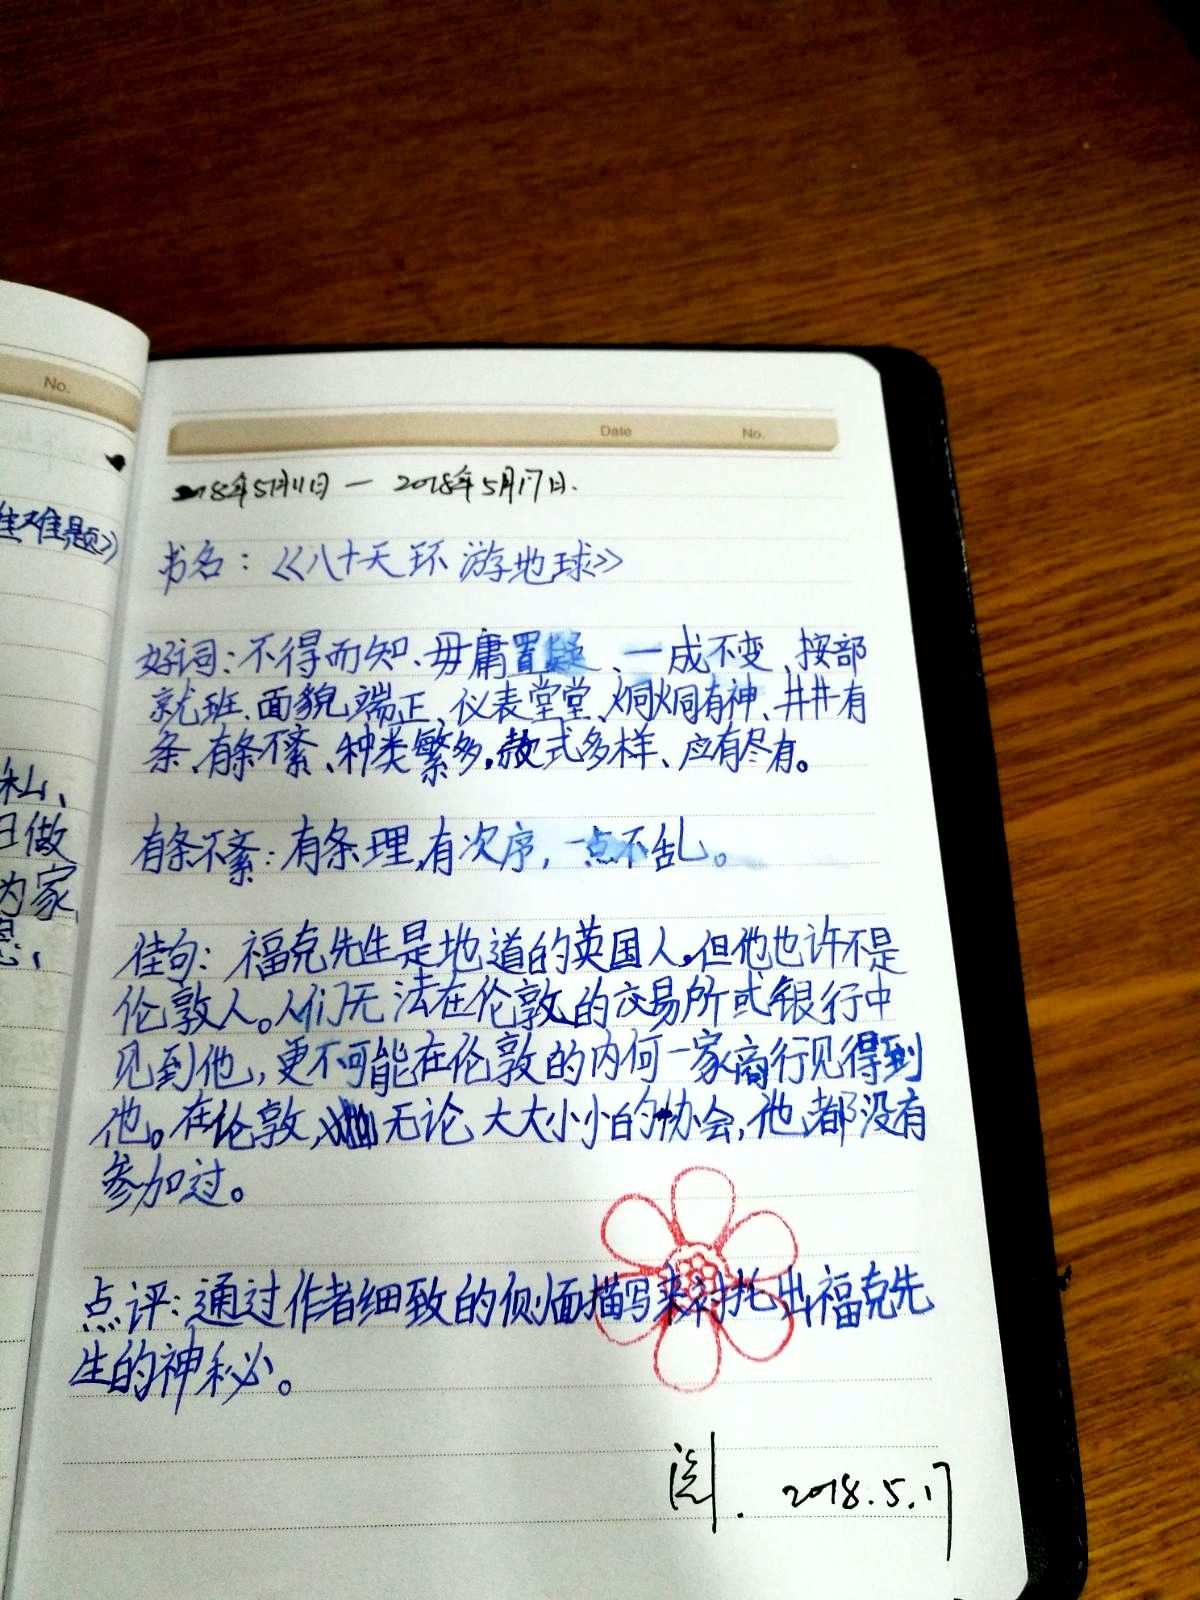 No.
生难题》
私、
日做
为家
息,
Date No.
2018年5月11日 — 2018年5月17日.
书名:《八十天环游地球》
好词:不得而知、毋庸置疑、一成不变、按部
就班、面貌端正、仪表堂堂、炯炯有神、井井有
条、有条不紊、种类繁多,款式多样、应有尽有。
有条不紊:有条理,有次序,一点不乱。
佳句:福克先生是地道的英国人,但他也许不是
伦敦人。人们无法在伦敦的交易所或银行中
见到他,更不可能在伦敦的内何一家商行见得到
他。在伦敦,无论大大小小的协会,他都没有
参加过。
点评:通过作者细致的侧面描写来衬托出福克先
生的神秘。
阅. 2018.5.17